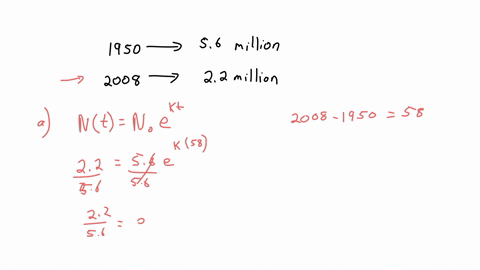 1950 → 5.6 million
→ 2008 → 2.2 million
a) N(t) = N₀ e^(kt)
2008 - 1950 = 58
2.2/5.6 = 5.6/5.6 e^(k(58))
2.2/5.6 = e